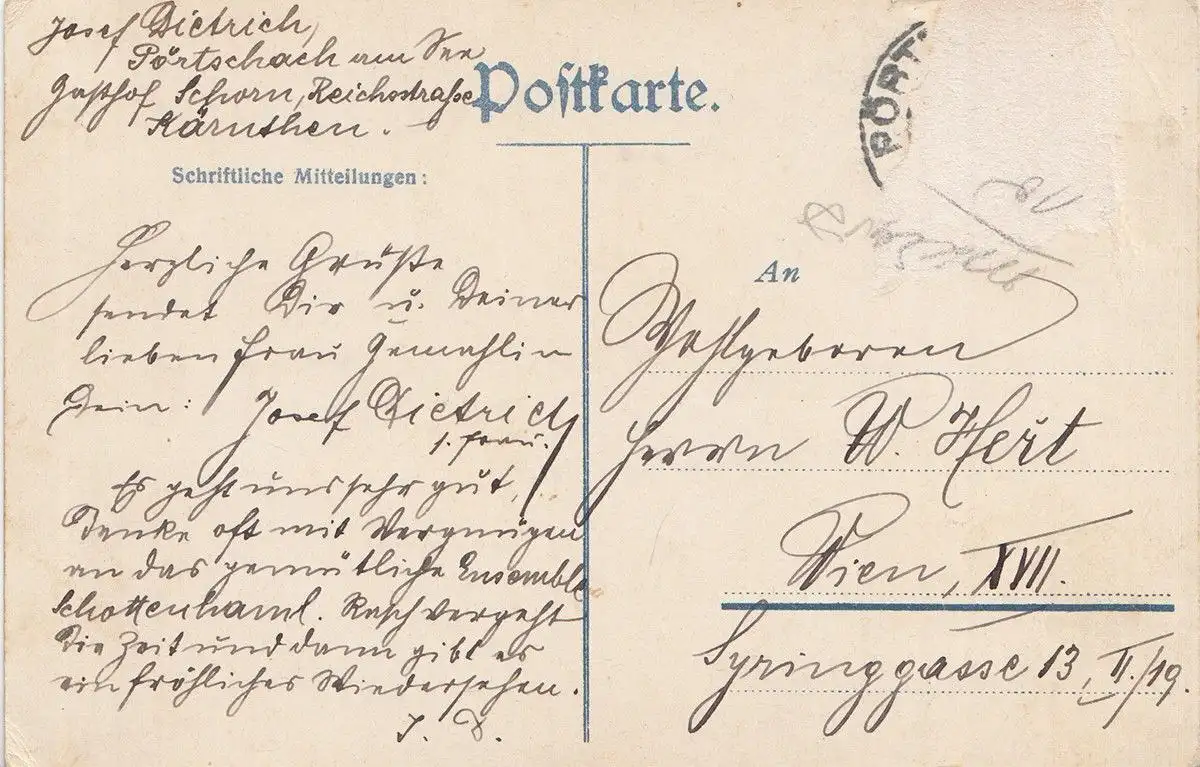 Josef Dietrich,
Pörtschach am See
Gasthof Schorn, Reichsstraße
Kärnthen.
Postkarte.
Schriftliche Mitteilungen:
Herzliche Grüße
sendet Dir u. Deiner
lieben Frau Gemahlin
Dein: Josef Dietrich
s. Frau.
Es geht uns sehr gut,
Denke oft mit Vergnügen
an das gemütliche Ensemble
Schottenhaml. Rasch vergeht
die Zeit und dann gibt es
ein fröhliches Wiedersehen.
J. D.
PÖRT
18
An
Wohlgeboren
Herrn W. Hert
Wien, XVII.
Syringgasse 13, II./19.